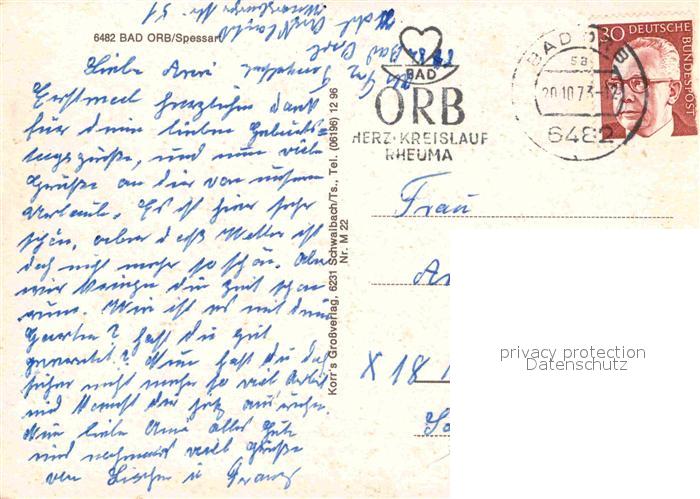 6482 BAD ORB/Spessart
Liebe Anni
Erstmal herzlichen Dank
für dein lieben Geburts=
tagsgrüße, und nun viele
Grüße an dir von unsern
Urlaub. Es ist hier sehr
schön, aber daß Wetter ist
doch nicht mehr so schön. Aber
wir kriegen die Zeit schon
rum. Wie ist es mit dein
Garten? hast du gut
geerntet? Nun hast du doch
sicher nicht mehr so viel Arbeit
und kannst dir jetz ausruhn.
Nun liebe Anni alles Gute
und nochmals viele Grüße
von Lieschen u Franz
Korr's Großverlag, 6231 Schwalbach/Ts., Tel. (06196) 12 96
Nr. M 22
BAD
ORB
HERZ·KREISLAUF
RHEUMA
BAD ORB 1
sa
20.10.73-12
6482
30 DEUTSCHE
BUNDESPOST
Frau
X 18
privacy protection
Datenschutz